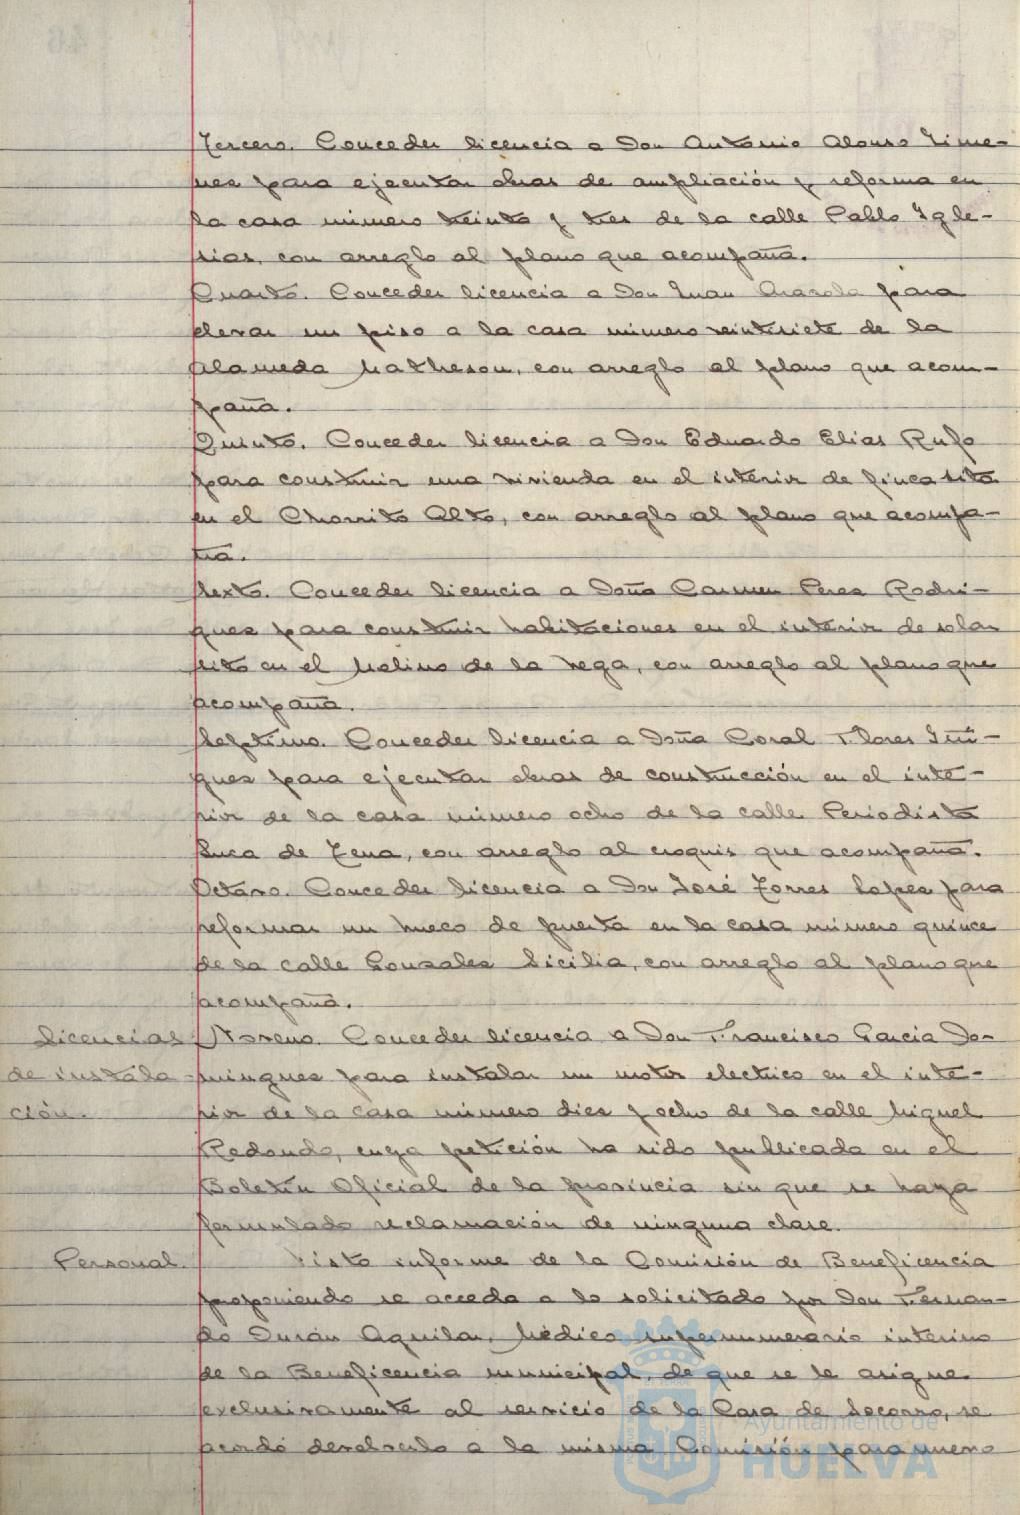 Tercero. Conceder licencia a Don Antonio Alonso Jime-
nez para ejecutar obras de ampliación y reforma en
la casa número treinta y tres de la calle Pablo Igle-
sias, con arreglo al plano que acompaña.
Cuarto. Conceder licencia a Don Juan para
elevar un piso a la casa número veintisiete de la
Alameda Matheson, con arreglo al plano que acom-
paña.
Quinto. Conceder licencia a Don Eduardo Elias Rufo
para construir una vivienda en el interior de finca sita
en el Chorrito Alto, con arreglo al plano que acompa-
ña.
Sexto. Conceder licencia a Doña Carmen Perez Rodri-
guez para construir habitaciones en el interior de solar
sito en el Molino de la Vega, con arreglo al plano que
acompaña.
Septimo. Conceder licencia a Doña Coral Flores Iñi-
guez para ejecutar obras de construcción en el inte-
rior de la casa número ocho de la calle Periodista
Luca de Tena, con arreglo al croquis que acompaña.
Octavo. Conceder licencia a Don José Torres Lopez para
reformar un hueco de puerta en la casa número quince
de la calle Gonzalez Sicilia, con arreglo al plano que
acompaña.
Licencias
de instala-
ción.
Noveno. Conceder licencia a Don Francisco Garcia Do-
minguez para instalar un motor electrico en el inte-
rior de la casa número diez y ocho de la calle Miguel
Redondo, cuya petición ha sido publicada en el
Boletín Oficial de la provincia sin que se haya
formulado reclamación de ninguna clase.
Personal.
Visto informe de la Comisión de Beneficencia
proponiendo se acceda a lo solicitado por Don Fernan-
do Durán Aguilar, Médico supernumerario interino
de la Beneficencia municipal, de que se le asigne
exclusivamente al servicio de la Casa de Socorro, se
acordó devolverlo a la misma Comisión para nuevo
Ayuntamiento de
HUELVA